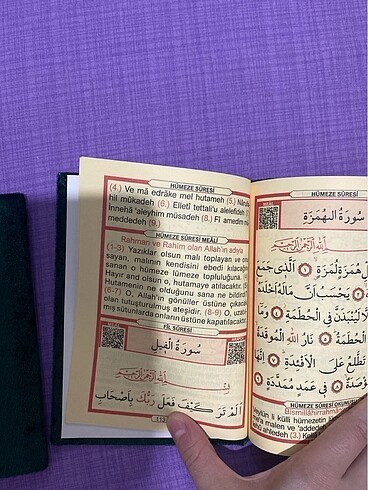 HÜMEZE SÛRESİ
(4.) Ve mâ edrâke mel hutameh (5.) Nârulla
hil mûkadeh (6.) Elletî tettali'u alelefideh
İnnehâ 'aleyhim mûsadeh (8.) Fî amedim m
meddedeh (9.)
HÜMEZE SÛRESİ MEÂLİ
Rahman ve Rahim olan Allah'ın adıyla
(1-3) Yazıklar olsun malı toplayan ve ona
sayan, malının kendisini ebedi kılacağını
sanan o hümeze lümeze topluluğuna.
Hayır and olsun o, hutameye atılacaktır.
Hutamenin ne olduğunu sana ne bildirdi
(6-7) O, Allah'ın gönüller üstüne çıkacak
olan tutuşturulmuş ateşidir. (8-9) O, uzatıl
mış sütunlarda onların üstüne kapatılacak
FİL SÛRESİ
سُورَةُ الْفِيلِ
اَلَمْ تَرَ كَيْفَ فَعَلَ رَبُّكَ بِاَصْحَابِ
113
HÜMEZE SÛRESİ
سُورَةُ الْهُمَزَةِ
لِّ هُمَزَةٍ لُمَزَةٍ ١ اَلَّذِى جَمَعَ
٢ يَحْسَبُ اَنَّ مَالَهُٓ اَخْلَدَهُ
لَا لَيُنْبَذَنَّ فِى الْحُطَمَةِ ٤ وَمَٓا
الْحُطَمَةُ ٥ نَارُ اللهِ الْمُوقَدَةُ
تَطَّلِعُ عَلَى الْاَفْـِٔدَةِ ٧ اِنَّهَا
مُؤْصَدَةٌ ٨ فِى عَمَدٍ مُمَدَّدَةٍ ٩
HÜMEZE SÛRESİ OKUNUŞU
Bismillâhirrahmâ
Veylün li külli hümezetin
me'a malen ve 'addede
ehü ahledeh (3.) Kellâ